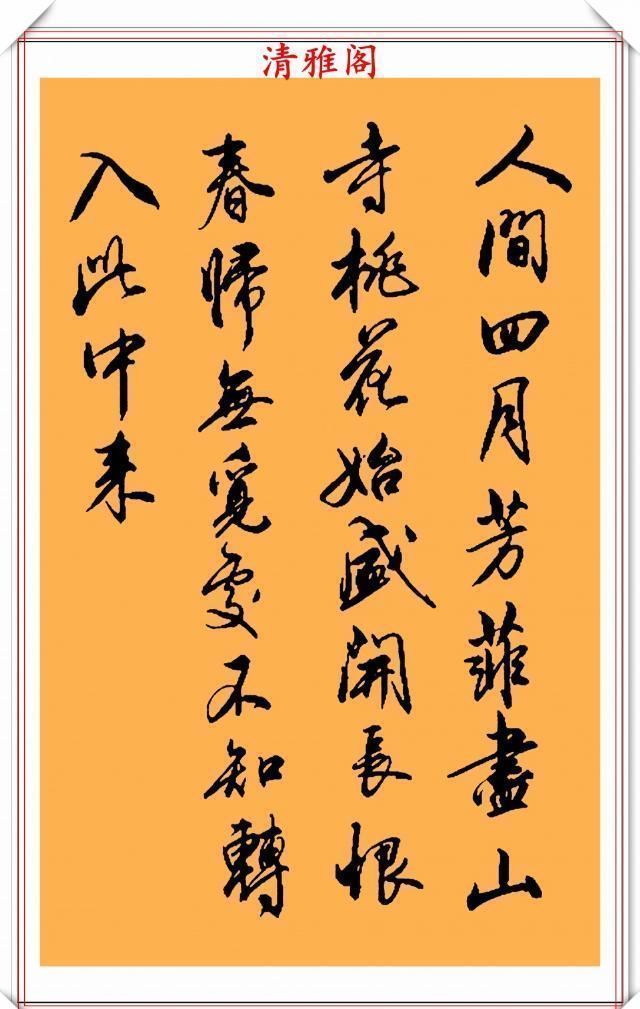 清雅阁
人間四月芳菲盡山
寺桃花始盛開長恨
春歸無覓處不知轉
入此中来